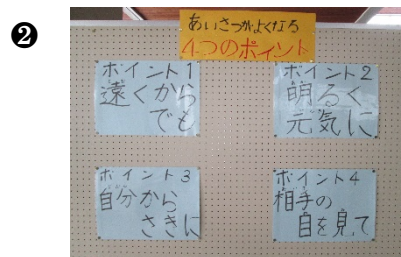 ❷
あいさつがよくなる
4つのポイント
ポイント1
遠くから
でも
ポイント2
明るく
元気に
ポイント3
自分から
さきに
ポイント4
相手の
目を見て